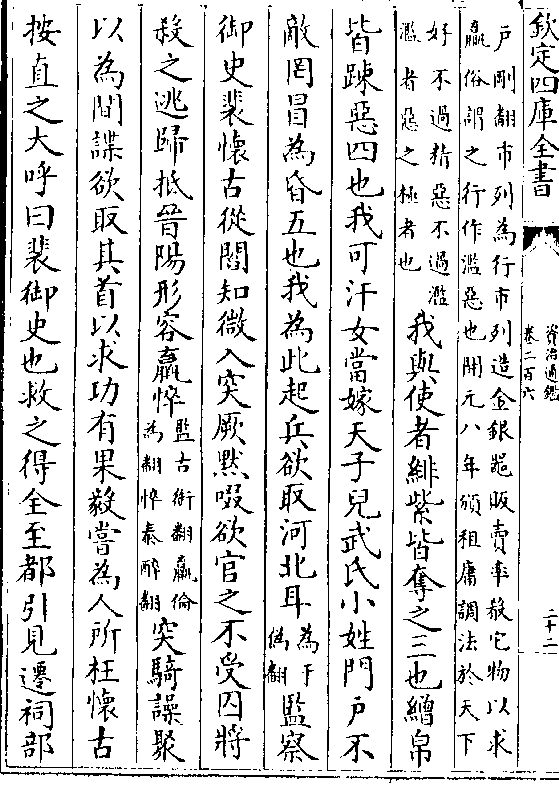 欽定四庫全書
資治通鑑
卷二百六
二十二
戶剛翻市列為行市列造金銀器販賣率殽它物以求
贏俗謂之行作濫惡也開元八年頒租庸調法於天下
好不過精惡不過濫
濫者惡之極者也
我與使者緋紫皆奪之三也繒帛
皆踈惡四也我可汗女當嫁天子兒武氏小姓門戶不
敵罔冒為昏五也我為此起兵欲取河北耳
為于
偽翻
監察
御史裴懷古從閻知微入突厥黙啜欲官之不受囚將
殺之逃歸抵晉陽形容羸悴
監古銜翻羸倫
為翻悴秦醉翻
突騎譟聚
以為間諜欲取其首以求功有果毅嘗為人所枉懷古
按直之大呼曰裴御史也救之得全至都引見遷祠部